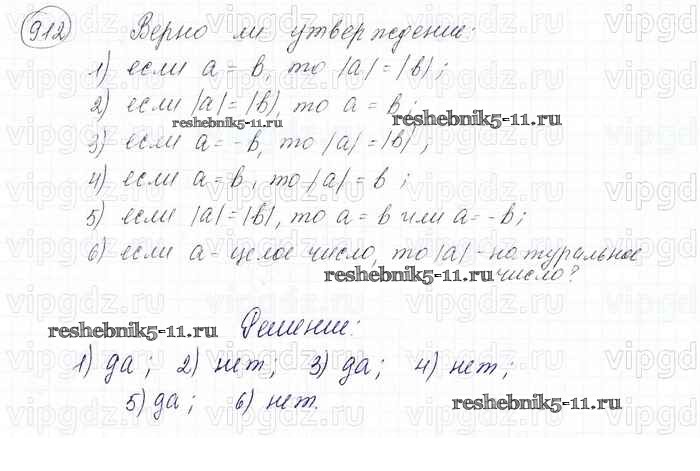 912 Верно ли утверждение:
1) если a = b, то |a| = |b|;
2) если |a| = |b|, то a = b;
reshebnik5-11.ru reshebnik5-11.ru
3) если a = -b, то |a| = |b|;
4) если a = b, то |a| = b;
5) если |a| = |b|, то a = b или a = -b;
6) если a - целое число, то |a| - натуральное
reshebnik5-11.ru число?
reshebnik5-11.ru Решение:
1) да; 2) нет; 3) да; 4) нет;
5) да; 6) нет.
reshebnik5-11.ru